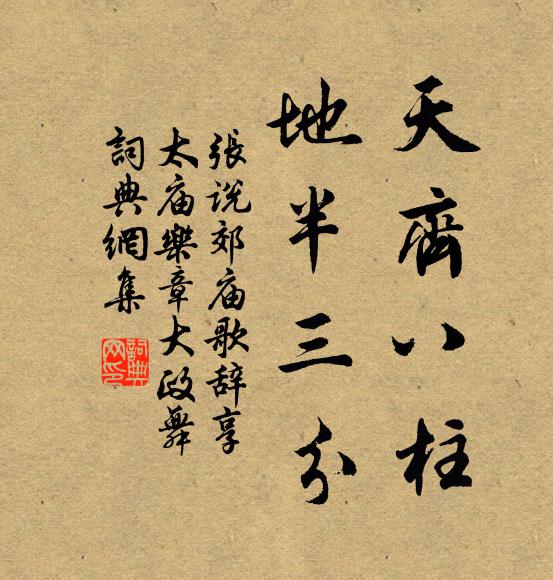 天齊八柱
地半三分
張说郊庙歌辞享
太庙樂章大政舞
詞典網集
詞典网印